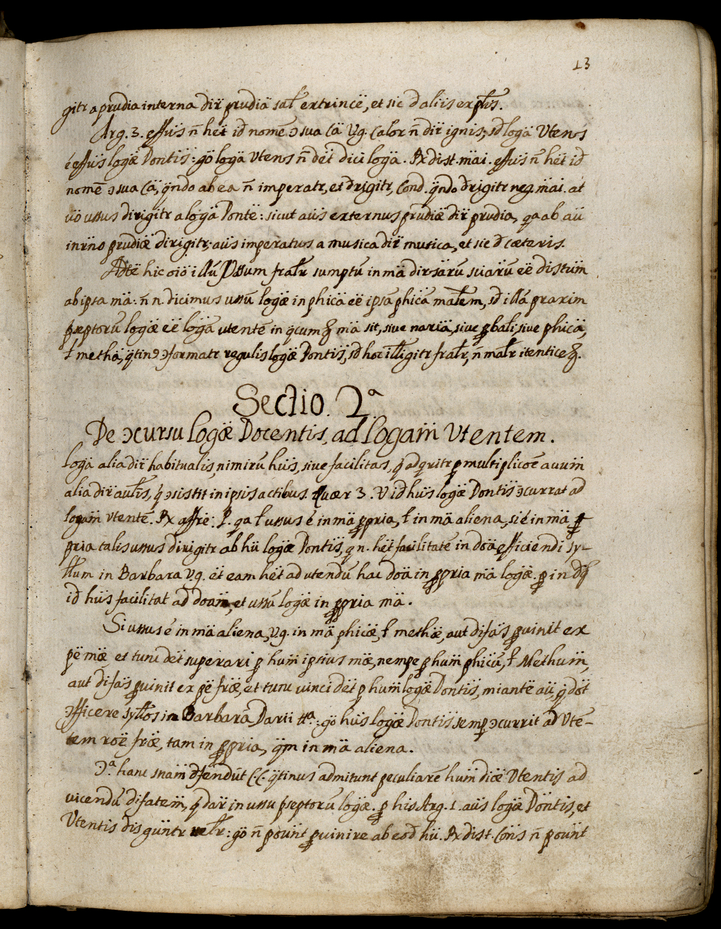 13
gitr a prudia interna dir̃ prudiã salr̃ extrincẽ, et sic d aliis explis.
Arg. 3. effus ñ hẽt id nomẽ ɔ sua cã Vg. Calor ñ dir̃ ignis; sd loga Vtens
ẽ effus logæ Dontis: gö loga Vtens ñ dẽt dici loga. Rx dist. mai. effus ñ hẽt id
nomẽ ɔ sua Cã, qndo ab ea ñ imperatr, et drigitr, Cond. qndo drigitr neg. mai. at
võ ussus dirigitr a loga Dontẽ: sicut aus externus prudiæ dir̃ prudia, qa ab aũ
inrno prudiæ dirigitr; aus imperatus a musica dir̃ musica, et sic d cæteris.
Adtẽ hic oiõ illũ Vssum fralr̃ sumptũ in mã dirsarũ sciarũ eẽ distum
ab ipsa mã: ñ n. dicimus ussũ logæ in phica eẽ ipsã phicã malem, sd illã praxim
pseptorũ logæ eẽ logã utentẽ in qcumqꝫ mã sit, siue naria, siue ꝓbali, siue phica,
ł metha, qtinꝰ ɔformatr regulis logæ Dontis, sd hoc illigitr fralr̃, ñ malr̃ itenticeqꝫ.
Sectio. 2ª
De ɔcursu Logæ Docentis, ad logam Vtentem.
loga alia dir̃ habitualis, nimirũ hus, siue facilitas, q̃ adqritr ꝑ multiplicoẽ auum
alia dir̃ aulis, q̃ ɔsistit in ipsis actibus. Quær 3. V id hus logæ Dontis ɔcurrat ad
logam vtentẽ. Rx affrẽ: P. qa ł ussus ẽ in mã ꝓpria, ł in mã aliena, si ẽ in mã ꝓ-
pria talis ussus dirigitr ab hũ logæ Dontis, q n. hẽt facilitatẽ in doã efficiendi sy-
llum in Barbara Vg. et eam hẽt ad utendũ hac doã in ꝓpria mã logæ. ꝑ in dqꝫ
id hus facilitat ad doam, et ussũ logæ in ꝓpria mã.
Si ussus ẽ in mã aliena, Vg. in mã phicæ, ł methæ, aut difas ꝓuinit ex
pẽ mæ et tunc dẽt superari ꝑ hum ipsius mæ, nempe ꝑ hum phicũ, ł Methum,
aut difas ꝓuinit ex pẽ fræ, et tunc uinci dẽt ꝑ hum logæ Dontis, miante aũ, q̃ dõt
ɔfficere syllos in Barbara Darii ttª: gö hus logæ Dontis semp ɔcurrit ad Vtẽ-
tem roẽ fræ, tam in ꝓpria, qm in mã aliena.
Ɔª hanc snam dfendũt CC. qtinus admitunt peculiarẽ hum diæ Vtentis ad
uicendũ difatem, q̃ dar̃ in ussu pseptorũ logæ. ꝑ his Arg. 1. aus logæ Dontis, et
Vtentis dis guntr relr̃: gö ñ põunt ꝓuinire ab eod hũ. Rx dist. Cons ñ põunt